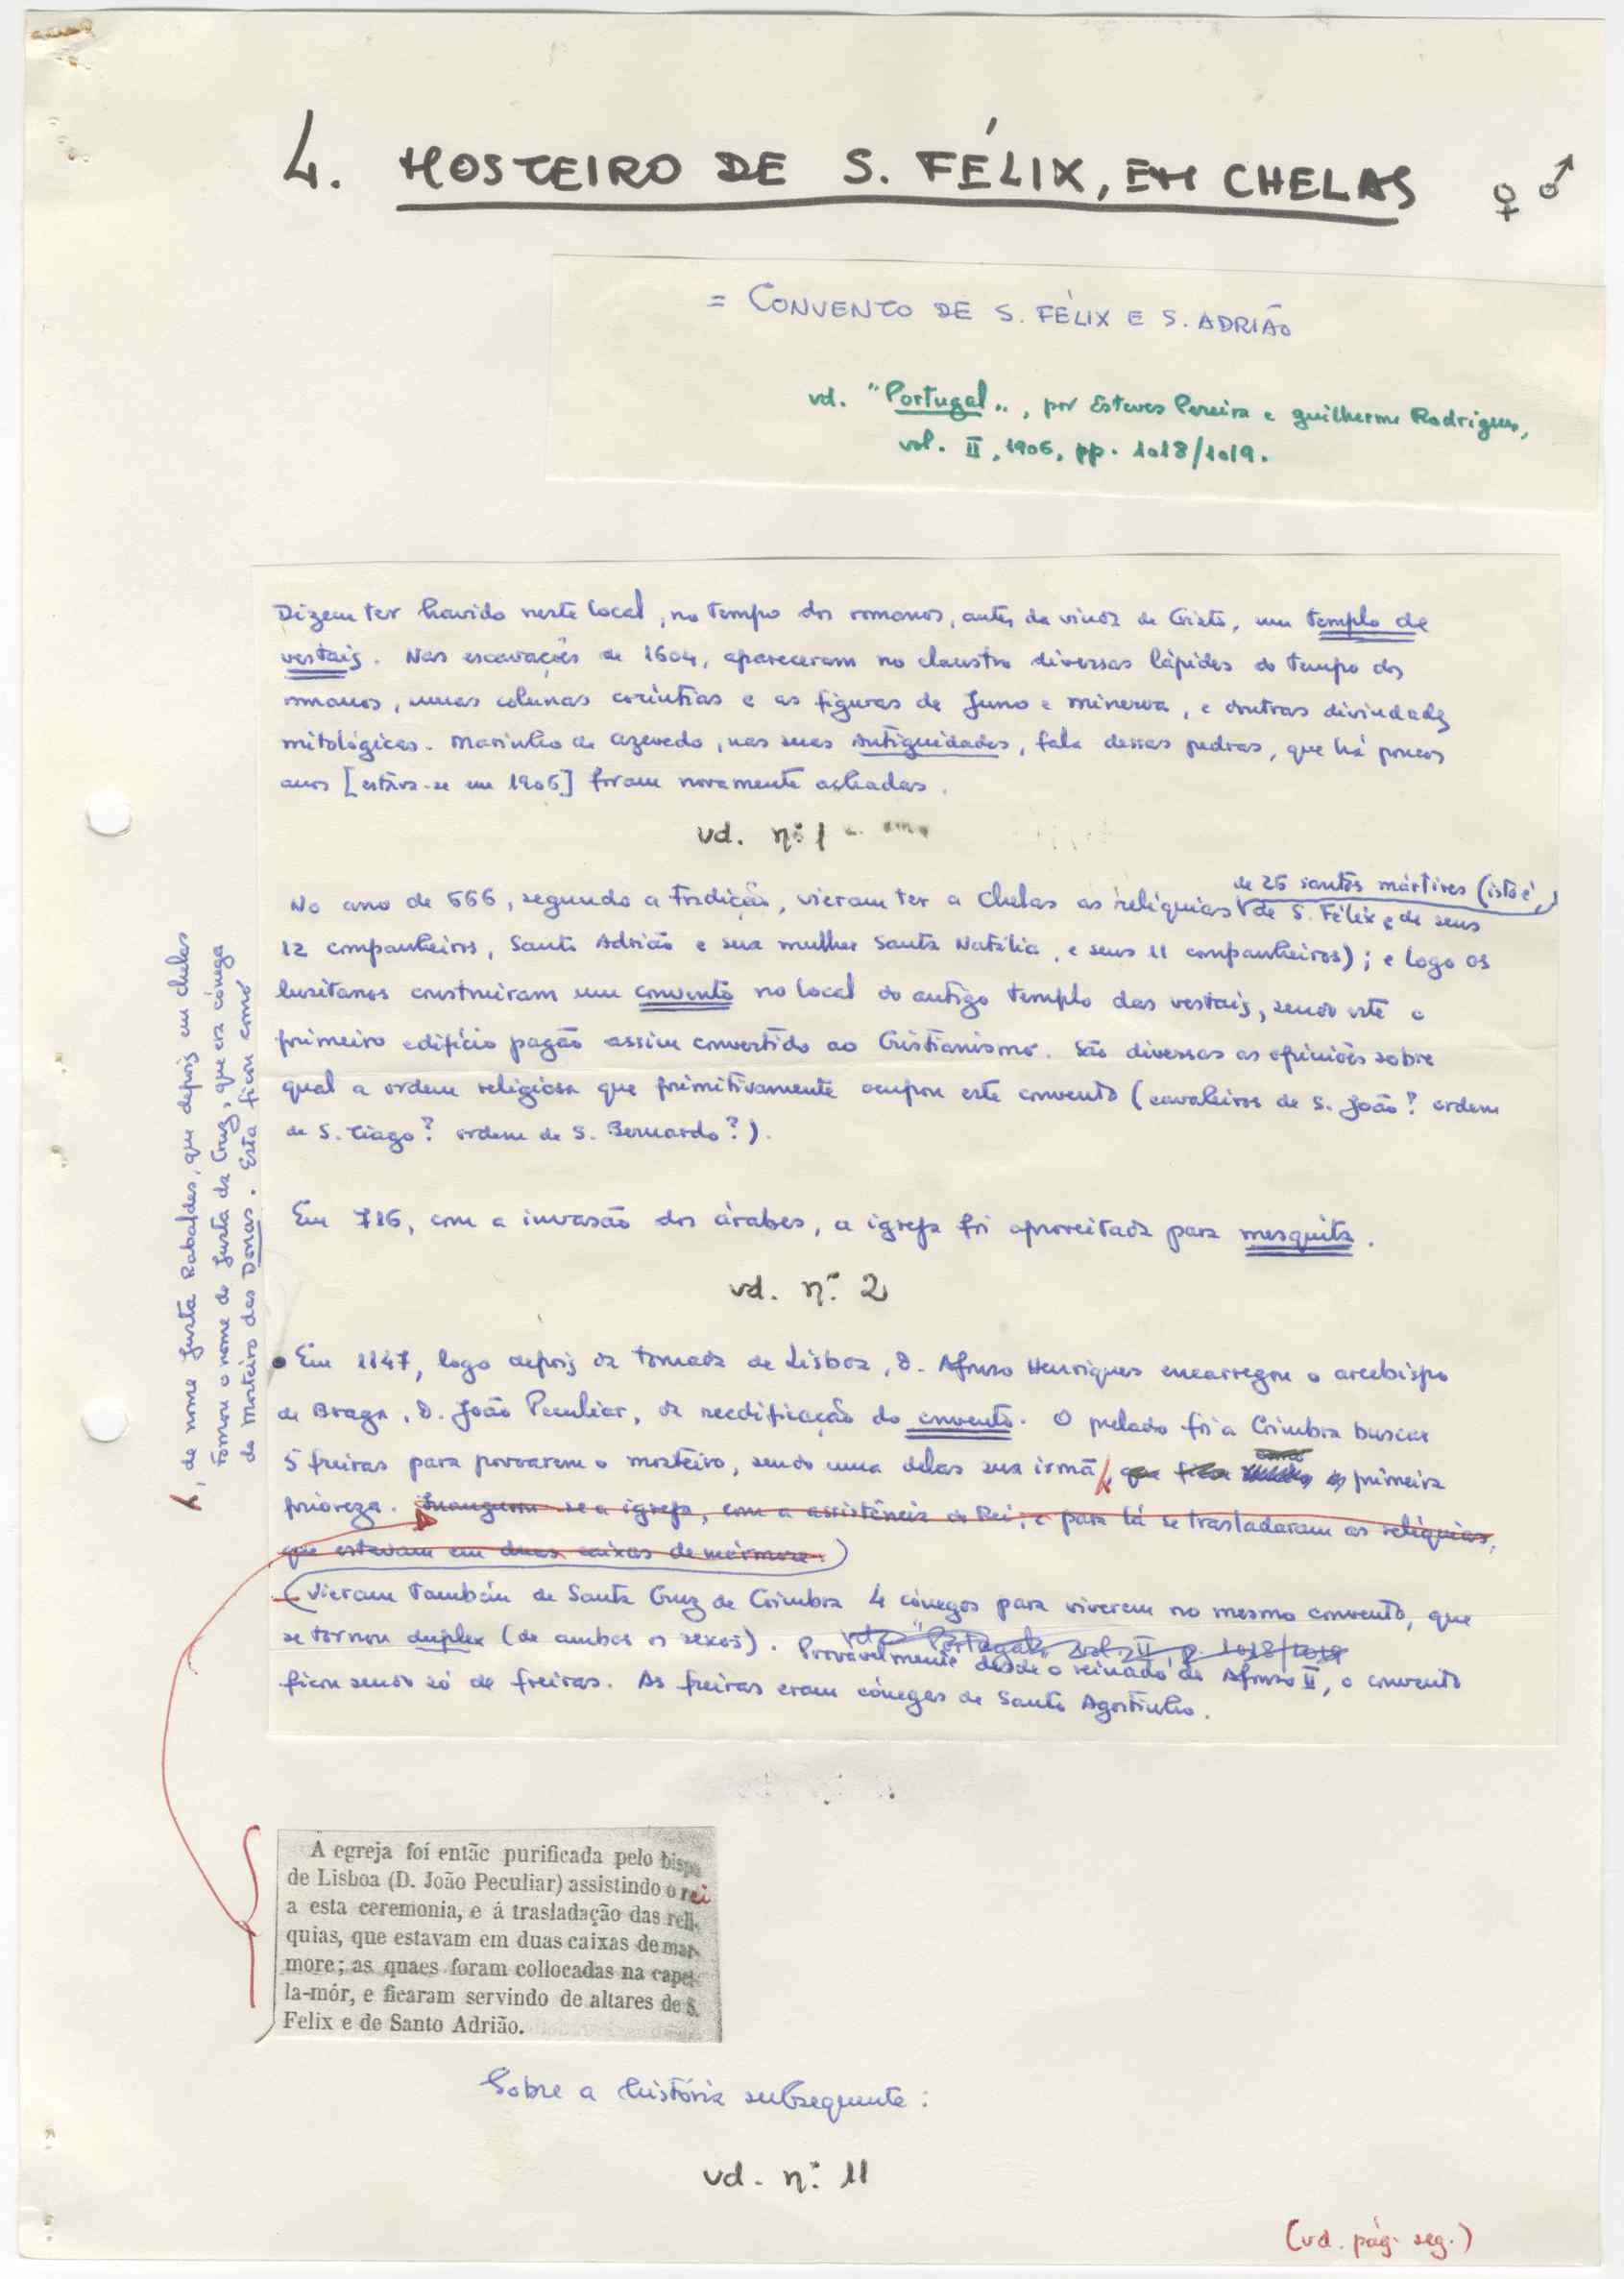 4. MOSTEIRO DE S. FÉLIX, EM CHELAS ♀ ♂
= CONVENTO DE S. FÉLIX E S. ADRIÃO
vd. "Portugal", por Esteves Pereira e Guilherme Rodrigues,
vol. II, 1906, pp. 1018/1019.
Dizem ter havido neste local, no tempo dos romanos, antes da vinda de Cristo, um templo de
vestais. Nas escavações de 1604, apareceram no claustro diversas lápides do tempo dos
romanos, umas colunas coríntias e as figuras de Juno e Minerva, e doutras divindades
mitológicas. Marinho de Azevedo, nas suas Antiguidades, fala dessas pedras, que há poucos
anos [estava-se em 1906] foram novamente achadas.
vd. nº 1
de 26 santos mártires (isto é,
No ano de 666, segundo a tradição, vieram ter a Chelas as relíquias de S. Félix e de seus
12 companheiros, Santo Adrião e sua mulher Santa Natália, e seus 11 companheiros); e logo os
lusitanos construiram um convento no local do antigo templo das vestais, sendo este o
primeiro edifício pagão assim convertido ao Cristianismo. São diversas as opiniões sobre
qual a ordem religiosa que primitivamente ocupou este convento (cavaleiros de S. João? ordem
de S. Tiago? ordem de S. Bernardo?).
Em 716, com a invasão dos árabes, a igreja foi aproveitada para mesquita.
vd. nº 2
• Em 1147, logo depois da tomada de Lisboa, D. Afonso Henriques encarregou o arcebispo
de Braga, D. João Peculiar, da reedificação do convento. O prelado foi a Coimbra buscar
5 freiras para povoarem o mosteiro, sendo uma delas sua irmã, que ficou como primeira
prioreza. Inaugurou-se a igreja, com a assistência do Rei, e para lá se trasladaram as relíquias,
que estavam em duas caixas de mármore.
(Vieram também de Santa Cruz de Coimbra 4 cónegos para viverem no mesmo convento, que
se tornou duplex (de ambos os sexos). vd. "Portugal", vol. II, p. 1018/1019
Provavelmente desde o reinado de Afonso II, o convento
ficou sendo só de freiras. As freiras eram cónegas de Santo Agostinho.
, de nome Justa Rabaldes, que depois em Chelas
tomou o nome de Justa da Cruz, que era cónega
do Mosteiro das Donas. Esta ficou como
A egreja foi então purificada pelo bispo
de Lisboa (D. João Peculiar) assistindo o rei
a esta ceremonia, e á trasladação das reli-
quias, que estavam em duas caixas de mar-
more; as quaes foram collocadas na capel-
la-mór, e ficaram servindo de altares de S.
Felix e de Santo Adrião.
Sobre a história subsequente:
vd. nº 11
(vd. pág. seg.)